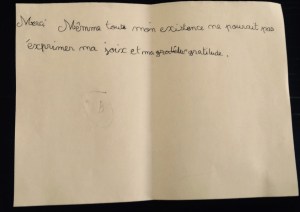 Merci Mêmme toute mon existence ne pourait pas
éxprimer ma joix et ma gratitude.